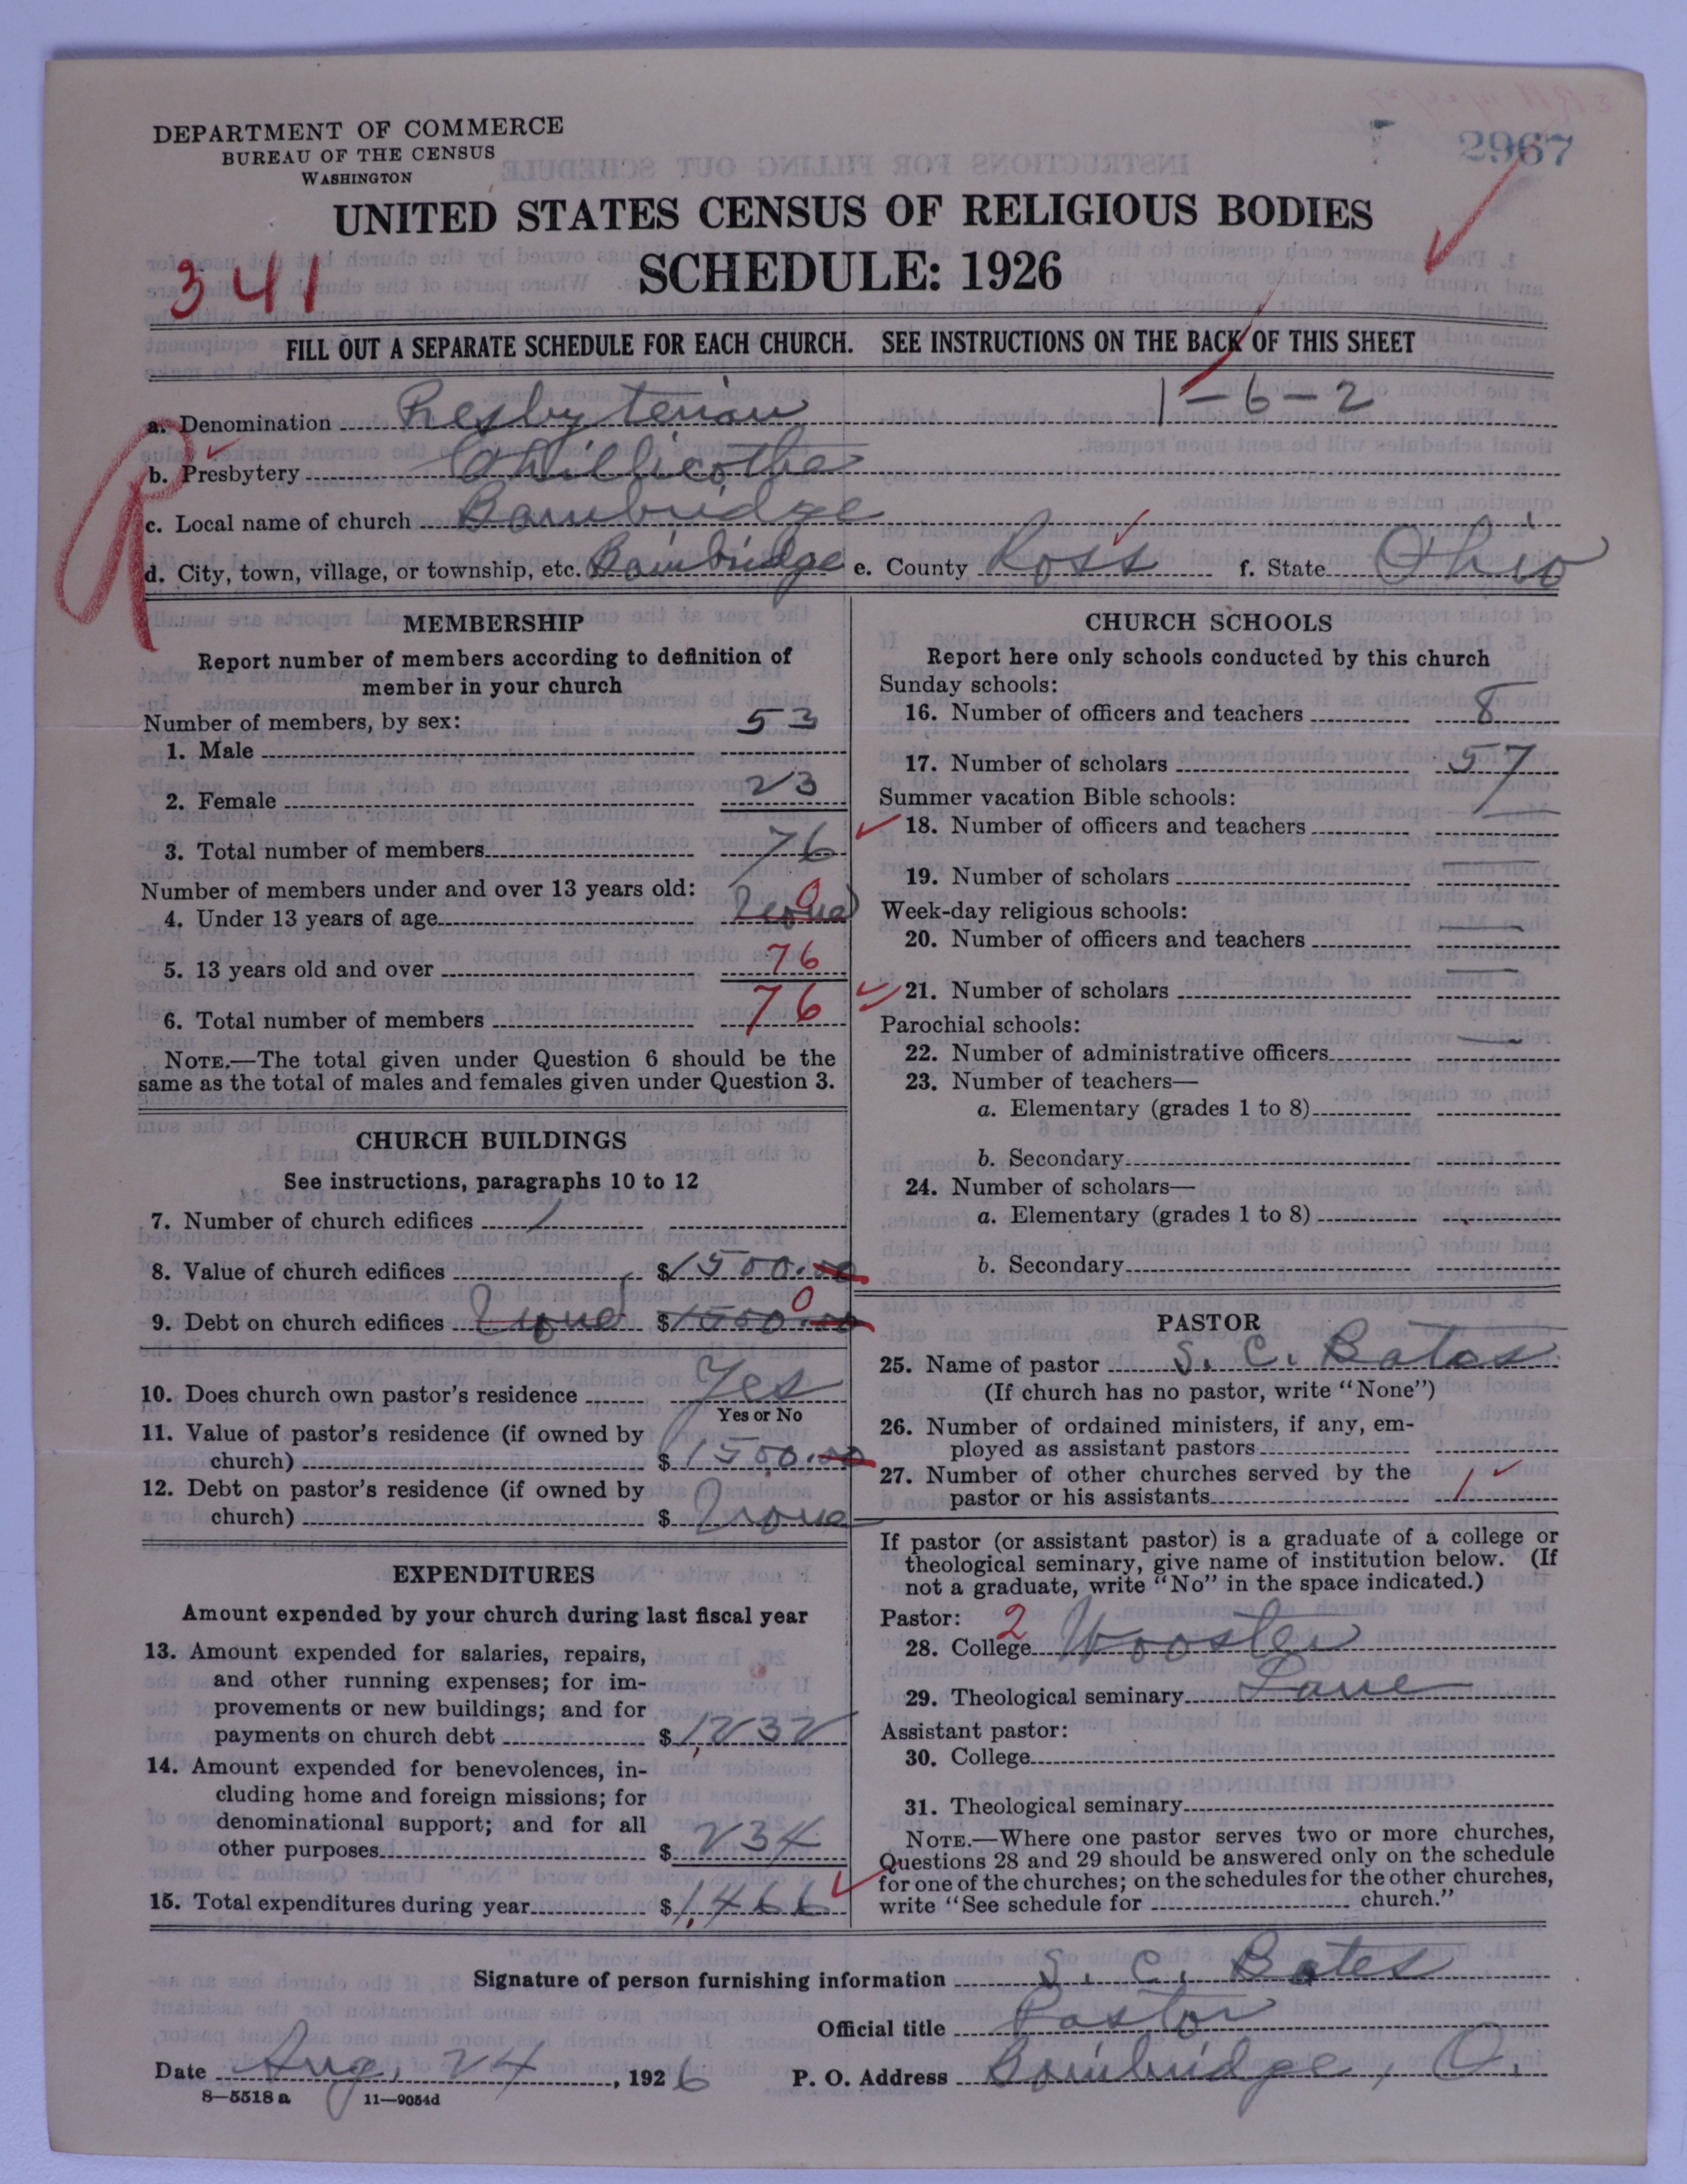 DEPARTMENT OF COMMERCE
BUREAU OF THE CENSUS
WASHINGTON
2967
UNITED STATES CENSUS OF RELIGIOUS BODIES
341
SCHEDULE: 1926
FILL OUT A SEPARATE SCHEDULE FOR EACH CHURCH. SEE INSTRUCTIONS ON THE BACK OF THIS SHEET
1-6-2
a. Denomination Presbyterian
b. Presbytery Chillicothe
c. Local name of church Bainbridge
d. City, town, village, or township, etc. Bainbridge e. County Ross f. State Ohio
MEMBERSHIP
Report number of members according to definition of
member in your church
Number of members, by sex:
1. Male 53
2. Female 23
3. Total number of members 76
Number of members under and over 13 years old:
4. Under 13 years of age None 0
5. 13 years old and over 76
6. Total number of members 76
NOTE.—The total given under Question 6 should be the
same as the total of males and females given under Question 3.
CHURCH BUILDINGS
See instructions, paragraphs 10 to 12
7. Number of church edifices 1
8. Value of church edifices $1500.00
9. Debt on church edifices None $1500.00 0
10. Does church own pastor's residence Yes
Yes or No
11. Value of pastor's residence (if owned by
church) $1500.00
12. Debt on pastor's residence (if owned by
church) $ None
EXPENDITURES
Amount expended by your church during last fiscal year
13. Amount expended for salaries, repairs,
and other running expenses; for im-
provements or new buildings; and for
payments on church debt $1,232
14. Amount expended for benevolences, in-
cluding home and foreign missions; for
denominational support; and for all
other purposes $234
15. Total expenditures during year $1,466
CHURCH SCHOOLS
Report here only schools conducted by this church
Sunday schools:
16. Number of officers and teachers 8
17. Number of scholars 57
Summer vacation Bible schools:
18. Number of officers and teachers
19. Number of scholars
Week-day religious schools:
20. Number of officers and teachers
21. Number of scholars
Parochial schools:
22. Number of administrative officers
23. Number of teachers—
a. Elementary (grades 1 to 8)
b. Secondary
24. Number of scholars—
a. Elementary (grades 1 to 8)
b. Secondary
PASTOR
25. Name of pastor S. C. Bates
(If church has no pastor, write "None")
26. Number of ordained ministers, if any, em-
ployed as assistant pastors
27. Number of other churches served by the
pastor or his assistants 1
If pastor (or assistant pastor) is a graduate of a college or
theological seminary, give name of institution below. (If
not a graduate, write "No" in the space indicated.)
Pastor: 2
28. College Wooster
29. Theological seminary Lane
Assistant pastor:
30. College
31. Theological seminary
NOTE.—Where one pastor serves two or more churches,
Questions 28 and 29 should be answered only on the schedule
for one of the churches; on the schedules for the other churches,
write "See schedule for church."
Signature of person furnishing information S. C. Bates
Official title Pastor
Date Aug. 24, 1926 P. O. Address Bainbridge, O.
8—5518a 11—9054d